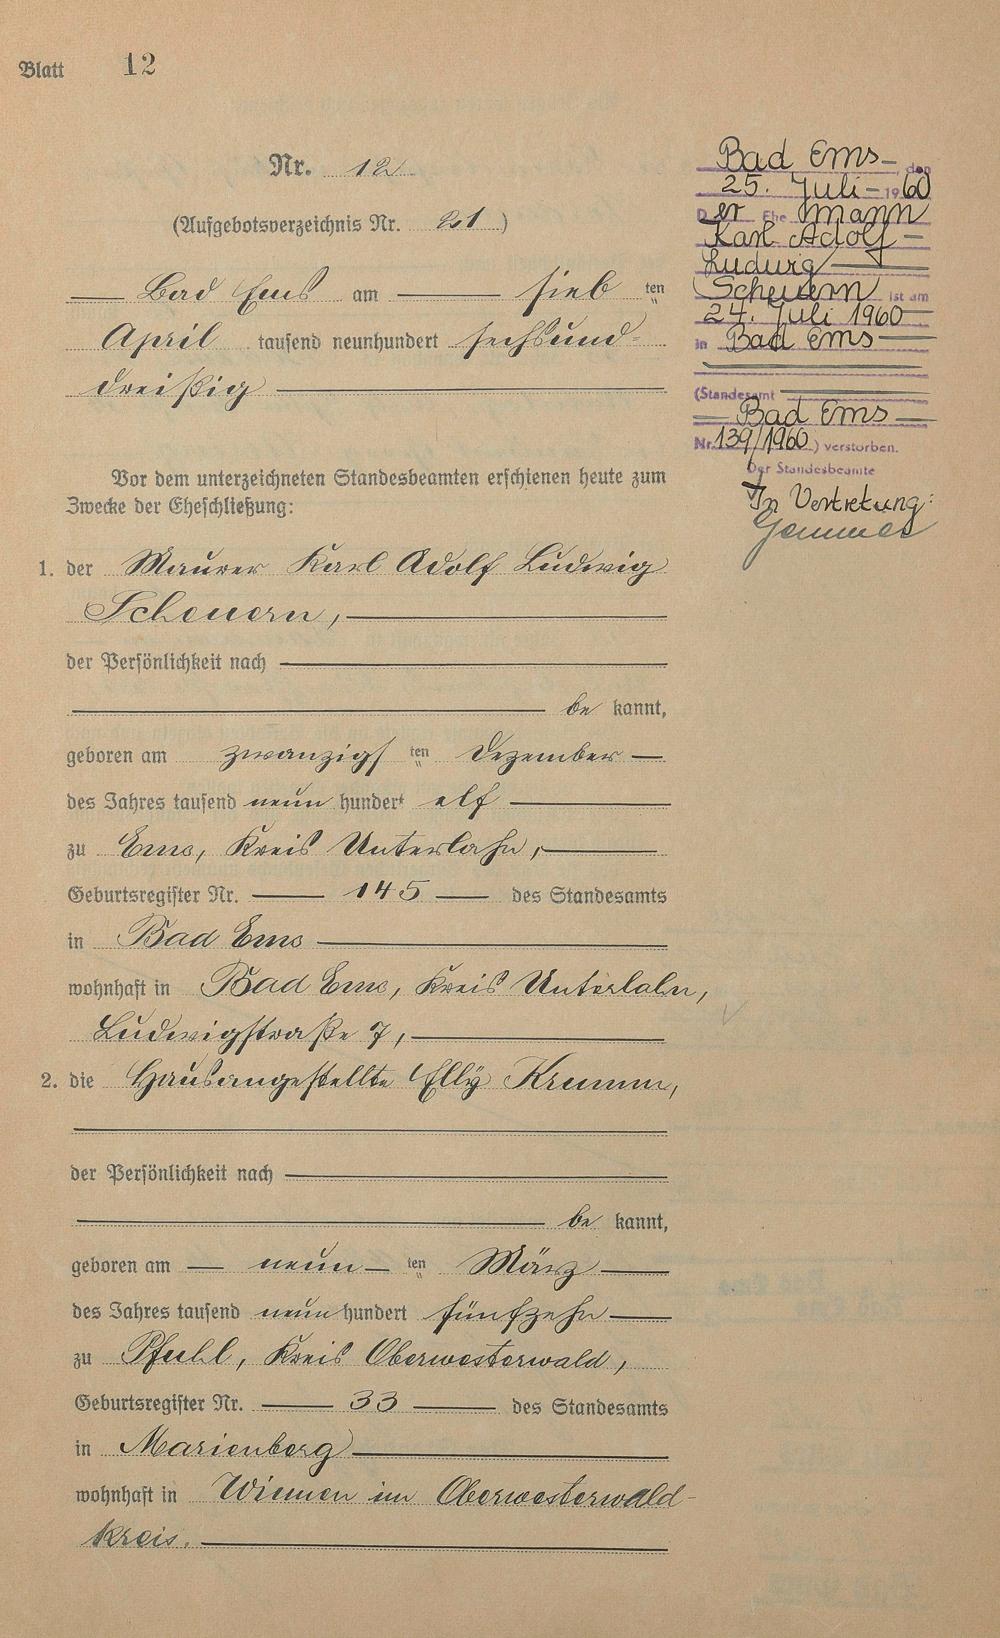 Blatt 12
Nr. 12
(Aufgebotsverzeichnis Nr. 21)
Bad Ems am sieb ten
April tausend neunhundert sechsund-
dreißig
Vor dem unterzeichneten Standesbeamten erschienen heute zum
Zwecke der Eheschließung:
1. der Maurer Karl Adolf Ludwig
Scheuern,
der Persönlichkeit nach
be kannt,
geboren am zwanzigs ten Dezember
des Jahres tausend neun hundert elf
zu Ems, Kreis Unterlahn,
Geburtsregister Nr. 145 des Standesamts
in Bad Ems
wohnhaft in Bad Ems, Kreis Unterlahn,
Ludwigstraße 7,
2. die Hausangestellte Elly Krumm,
der Persönlichkeit nach
be kannt,
geboren am neun ten März
des Jahres tausend neun hundert fünfzehn
zu Pfuhl, Kreis Oberwesterwald,
Geburtsregister Nr. 33 des Standesamts
in Marienberg
wohnhaft in im Oberwesterwald-
kreis.
Bad Ems, den
25. Juli 1960
Der Ehemann
Karl Adolf
Ludwig
Scheuern ist am
24. Juli 1960
in Bad Ems
(Standesamt
Bad Ems
Nr. 139/1960) verstorben.
Der Standesbeamte
In Vertretung: